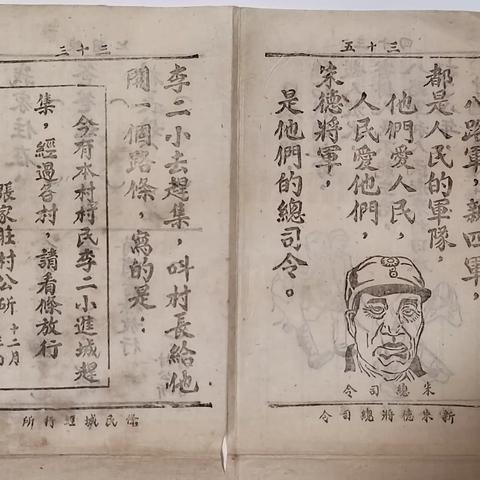 三十五
八路軍，新四軍，
都是人民的軍隊，
他們愛人民，
人民愛他們，
朱德將軍，
是他們的總司令。
朱總司令
新朱德將總司令
三十三
李二小去趕集，叫村長給他
開一個路條，寫的是：
今有本村村民李二小進城趕
集，經過各村，請看條放行
張家莊村公所 十二月